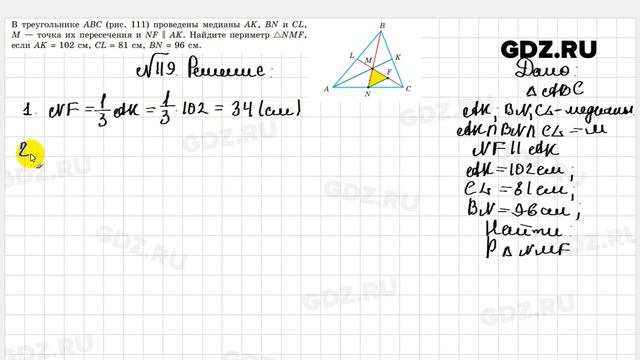 В треугольнике ABC (рис. 111) проведены медианы AK, BN и CL,
M — точка их пересечения и NF ∥ AK. Найдите периметр △NMF,
если AK = 102 см, CL = 81 см, BN = 96 см.
B
L
K
M
F
A
N
C
GDZ.RU
№119. Решение:
Дано:
△ABC
1. NF = 1/3 AK = 1/3 · 102 = 34 (см)
AK, BN, CL – медианы
AK ∩ BN ∩ CL = M
NF ∥ AK
2.
AK = 102 см;
CL = 81 см;
BN = 96 см;
Найти:
P △ NMF
GDZ.RU
GDZ.RU
GDZ.RU
GDZ.RU